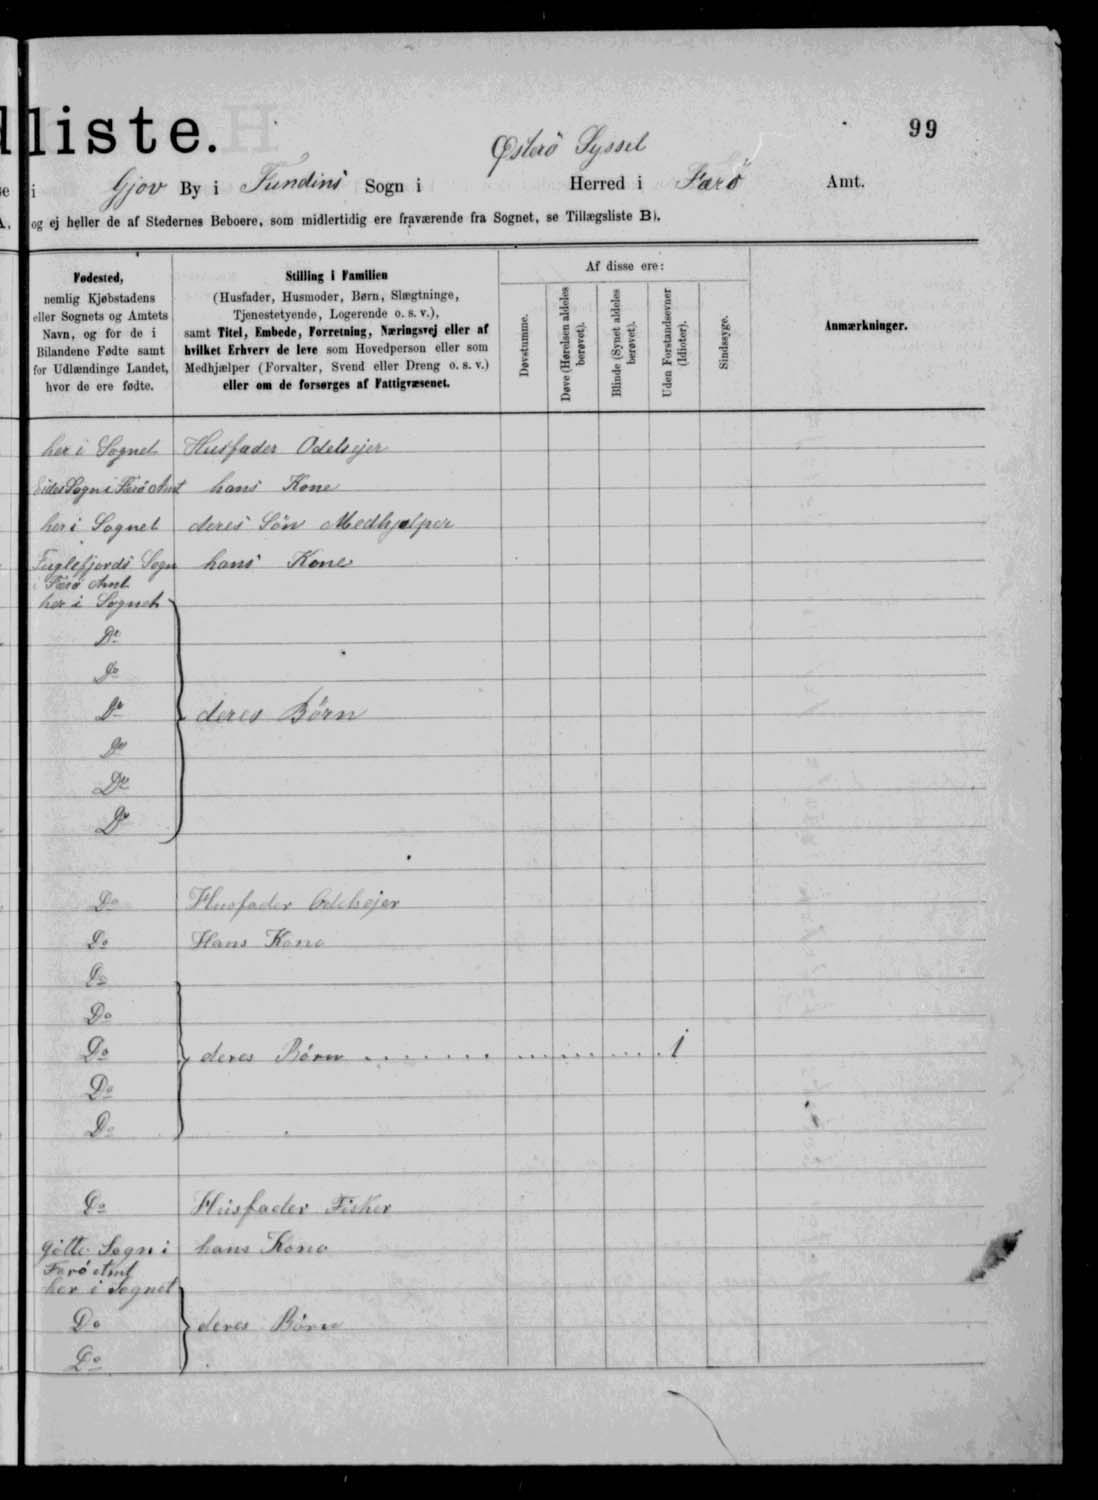 dliste.
99
Østerö Syssel
i Gjov By i Fundins Sogn i Herred i Færö Amt.
og ej heller de af Stedernes Beboere, som midlertidig ere fraværende fra Sognet, se Tillægsliste B).
Fødested,
nemlig Kjøbstadens
eller Sognets og Amtets
Navn, og for de i
Bilandene Fødte samt
for Udlændinge Landet,
hvor de ere fødte.
Stilling i Familien
(Husfader, Husmoder, Børn, Slægtninge,
Tjenestetyende, Logerende o. s. v.),
samt Titel, Embede, Forretning, Næringsvej eller af
hvilket Erhverv de leve som Hovedperson eller som
Medhjælper (Forvalter, Svend eller Dreng o. s. v.)
eller om de forsørges af Fattigvæsenet.
Af disse ere:
Døvstumme.
Døve (Hørelsen aldeles
berøvet).
Blinde (Synet aldeles
berøvet).
Uden Forstandsevner
(Idioter).
Sindssyge.
Anmærkninger.
her i Sognet Husfader Odelsejer
Eides Sogn i Færö Amt hans Kone
her i Sognet deres Sön Medhjelper
Fuglefjords Sogn hans Kone
i Færö Amt
her i Sognet
Do
Do
Do deres Börn
Do
Do
Do
Do Husfader Odelsejer
Do Hans Kone
Do
Do
Do deres Börn 1
Do
Do
Do Husfader Fisker
Götte Sogn i hans Kone
Færö Amt
her i Sognet
Do deres Börn
Do